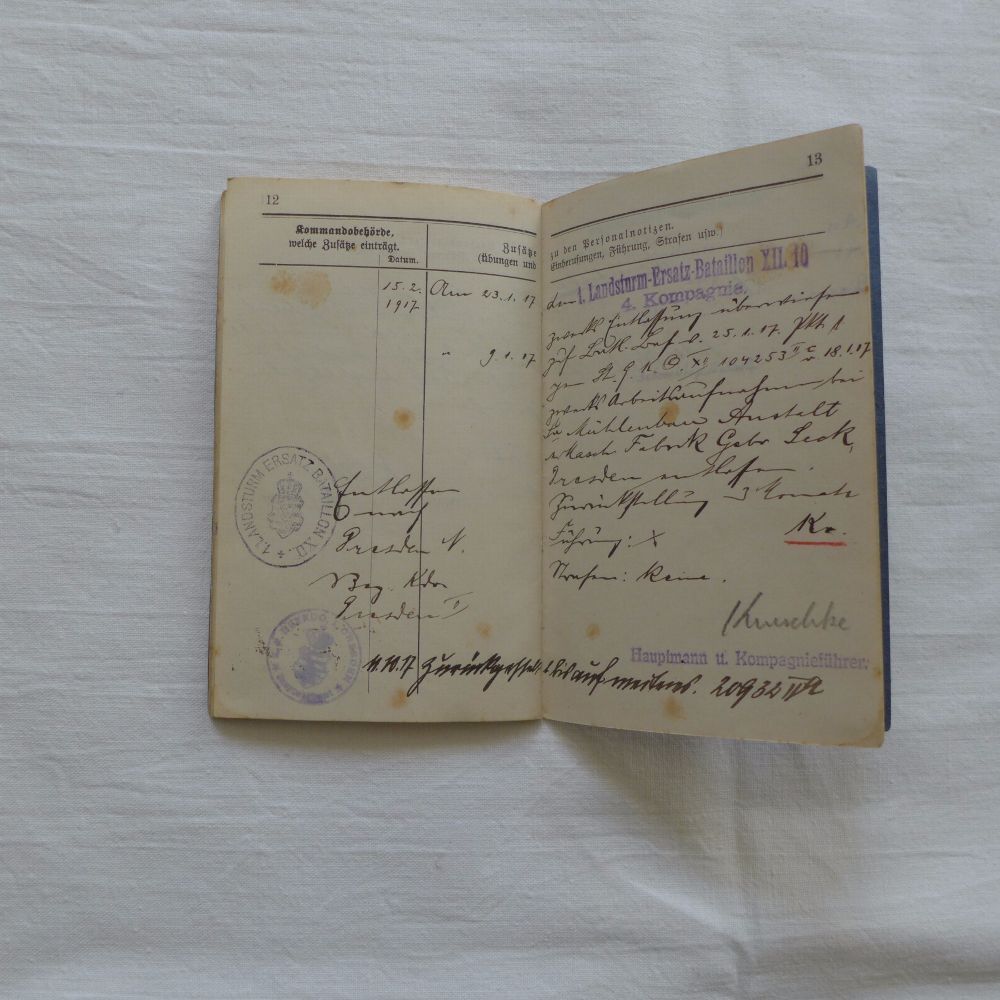 12
Kommandobehörde,
welche Zusätze einträgt.
Datum.
Zusätze
(Übungen und
15.2.
1917
Am 23.1.17
" 9.1.17
1. LANDSTURM ERSATZ-BATAILLON XII.
Entlassen
nach
Dresden N.
Bez. Kdo
Dresden II
11.10.17 Zurückgestellt bis auf weiteres. 20932
13
zu den Personalnotizen.
Einberufungen, Führung, Strafen usw.)
dem 1. Landsturm-Ersatz-Bataillon XII. 10
4. Kompagnie.
zwecks Entlassung überwiesen
zuf. Batl. Bef. v. 25.1.17. Pkt. 1
gem. St. G. K. XII 104253 II c v. 18.1.17
zwecks Arbeitsaufnahme bei
Fa Mühlenbau Anstalt
u. Masch. Fabrik Gebr Seck,
Dresden entlassen.
Zurückstellung 3 Monate
Führung:
Kr.
Strafen: keine.
Hauptmann u. Kompagnieführer.